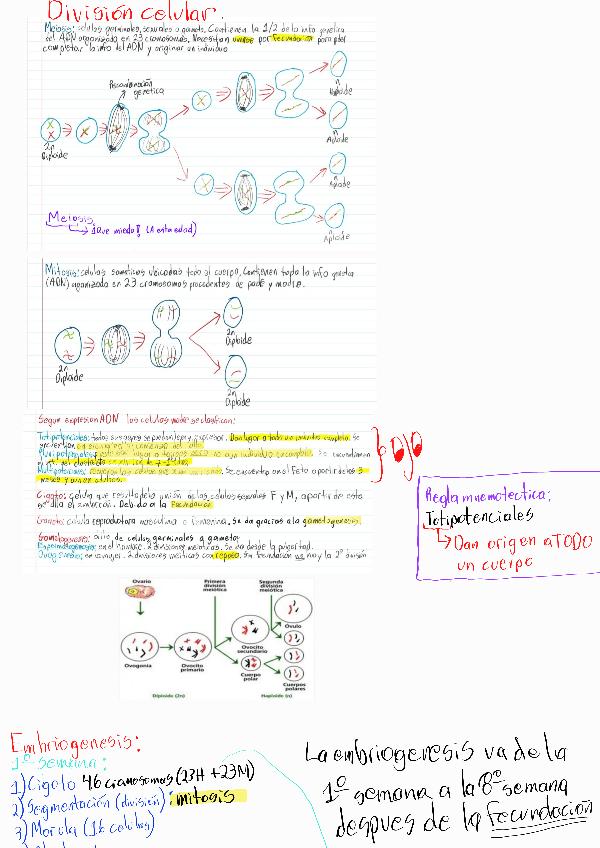 División celular.
Meiosis: celulas germinales, sexuales o gameto. Contienen la 1/2 de la info genetica
del ADN organizada en 23 cromosomas. Necesitan unirse por fecundación para poder
completar la info del ADN y originar un individuo
Recombinación
genetica
2n
Diploide
n
Aploide
n
Aploide
n
Aploide
n
Aploide
Meiosis
¡Que miedo! (A esta edad)
Mitosis: celulas somaticas ubicadas todo el cuerpo, Contienen toda la info genetica
(ADN) organizada en 23 cromosomas procedentes de padre y madre.
2n
Diploide
2n
Diploide
2n
Diploide
Segun expresion ADN las celulas madre se clasifican:
Totipotenciales: todos sus genes se pueden leer y expresar. Dan lugar a todo un individuo completo. Se
encuentran
Pluripotenciales:
Se encuentran
Se encuentra en el Feto a partir de los 3
meses y en un adulto.
Cigoto: celula que resulta de la union de las celulas sexuales F y M, a partir de esta
Debido a la Fecundación
Gameto: celula reproductora masculina o femenina. Se da gracias a la gametogenesis.
Gametogenesis: de celulas germinales a gametos
Espermatogenesis: en el hombre. 2 divisiones meioticas. Se da desde la pubertad.
en mujer. 2 divisiones meioticas con reposo. Sin fecundación no hay la 2º división
OJO
Regla mnemotectica:
Totipotenciales
Dan origen a TODO
un cuerpo
Ovario
Primera
división
meiótica
Segunda
división
meiótica
Ovogonia
Ovocito
primario
Ovocito
secundario
Cuerpo
polar
Óvulo
Cuerpos
polares
Diploide (2n)
Haploide (n)
Embriogenesis:
1º semana:
1) Cigoto 46 cromosomas (23H + 23M)
2) Segmentación (división): mitosis
3) Morula (16 celulas)
La embriogenesis va de la
1º semana a la 8º semana
despues de la fecundación